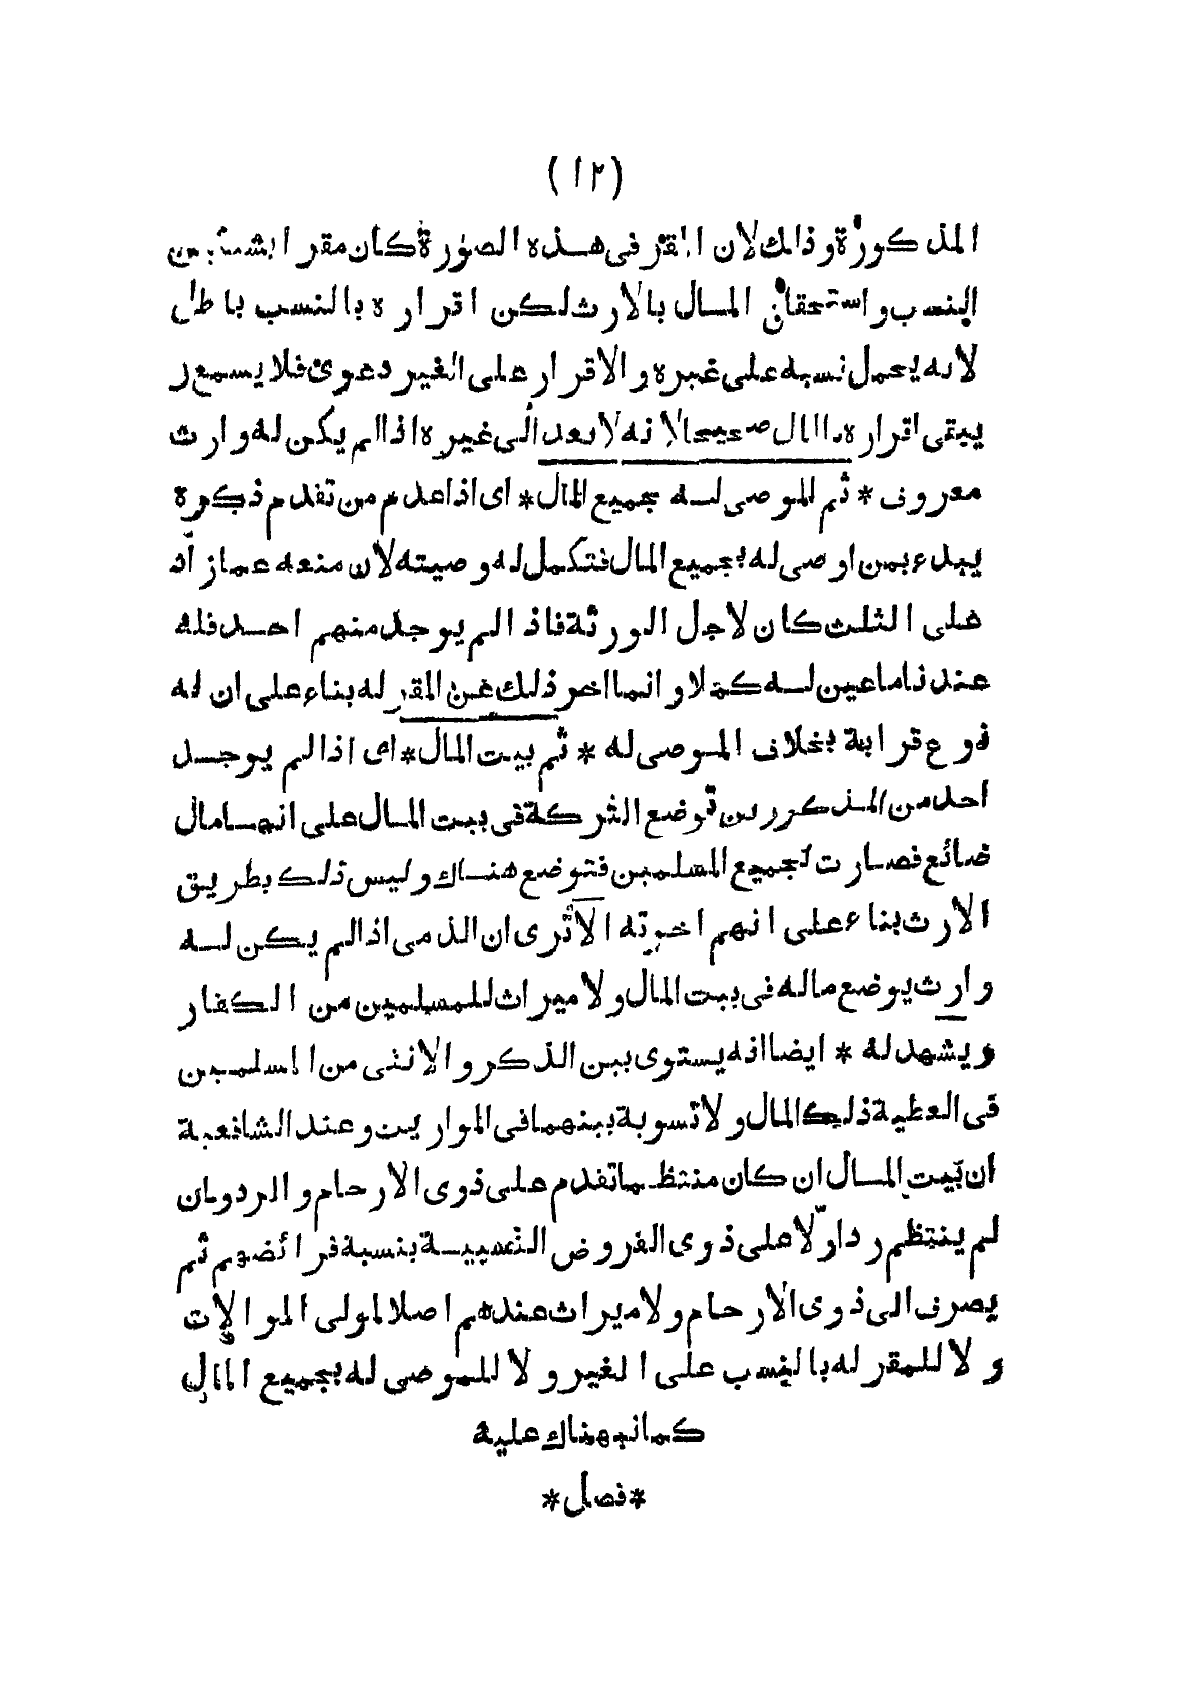 (١٢)
المذكورة وذالك لان المقر فى هذه الصورة كان مقرا بشيئين
النسب واستحقاق المال بالارث لكن اقراره بالنسب باطل
لانه يحمل نسبه على غيره والاقرار على الغير دعوى فلا يسمع و
يبقى اقراره بالمال صحيحا لانه لا يعد الى غيره اذا لم يكن له وارث
معروف * ثم الموصى له بجميع المال * اى اذا عدم من تقدم ذكره
يبدء بمن اوصى له بجميع المال فتكمل له وصيته لان منعه عما زاد
على الثلث كان لاجل الورثة فاذا لم يوجد منهم احد فله
عندنا ما عين له كملا وانما اخر ذلك عن المقر له بناء على ان له
نوع قرابة بخلاف الموصى له * ثم بيت المال * اى اذا لم يوجد
احد من المذكورين توضع التركة فى بيت المال على انها مال
ضائع فصارت لجميع المسلمين فتوضع هناك وليس ذلك بطريق
الارث بناء على انهم اخوته الا ترى ان الذمى اذا لم يكن له
وارث يوضع ماله فى بيت المال ولا ميراث للمسلمين من الكفار
ويشهد له * ايضا انه يستوى بين الذكر والانثى من المسلمين
فى العطية ذلك المال ولا تسوية بينهما فى المواريث وعند الشافعية
ان بيت المال ان كان منتظما تقدم على ذوى الارحام والرد وان
لم ينتظم رد اولا على ذوى الفروض النسبية بنسبة فرائضهم ثم
يصرف الى ذوى الارحام ولا ميراث عندهم اصلا لمولى الموالات
ولا للمقر له بالنسب على الغير ولا للموصى له بجميع المال
كما نبهناك عليه
* فصل *